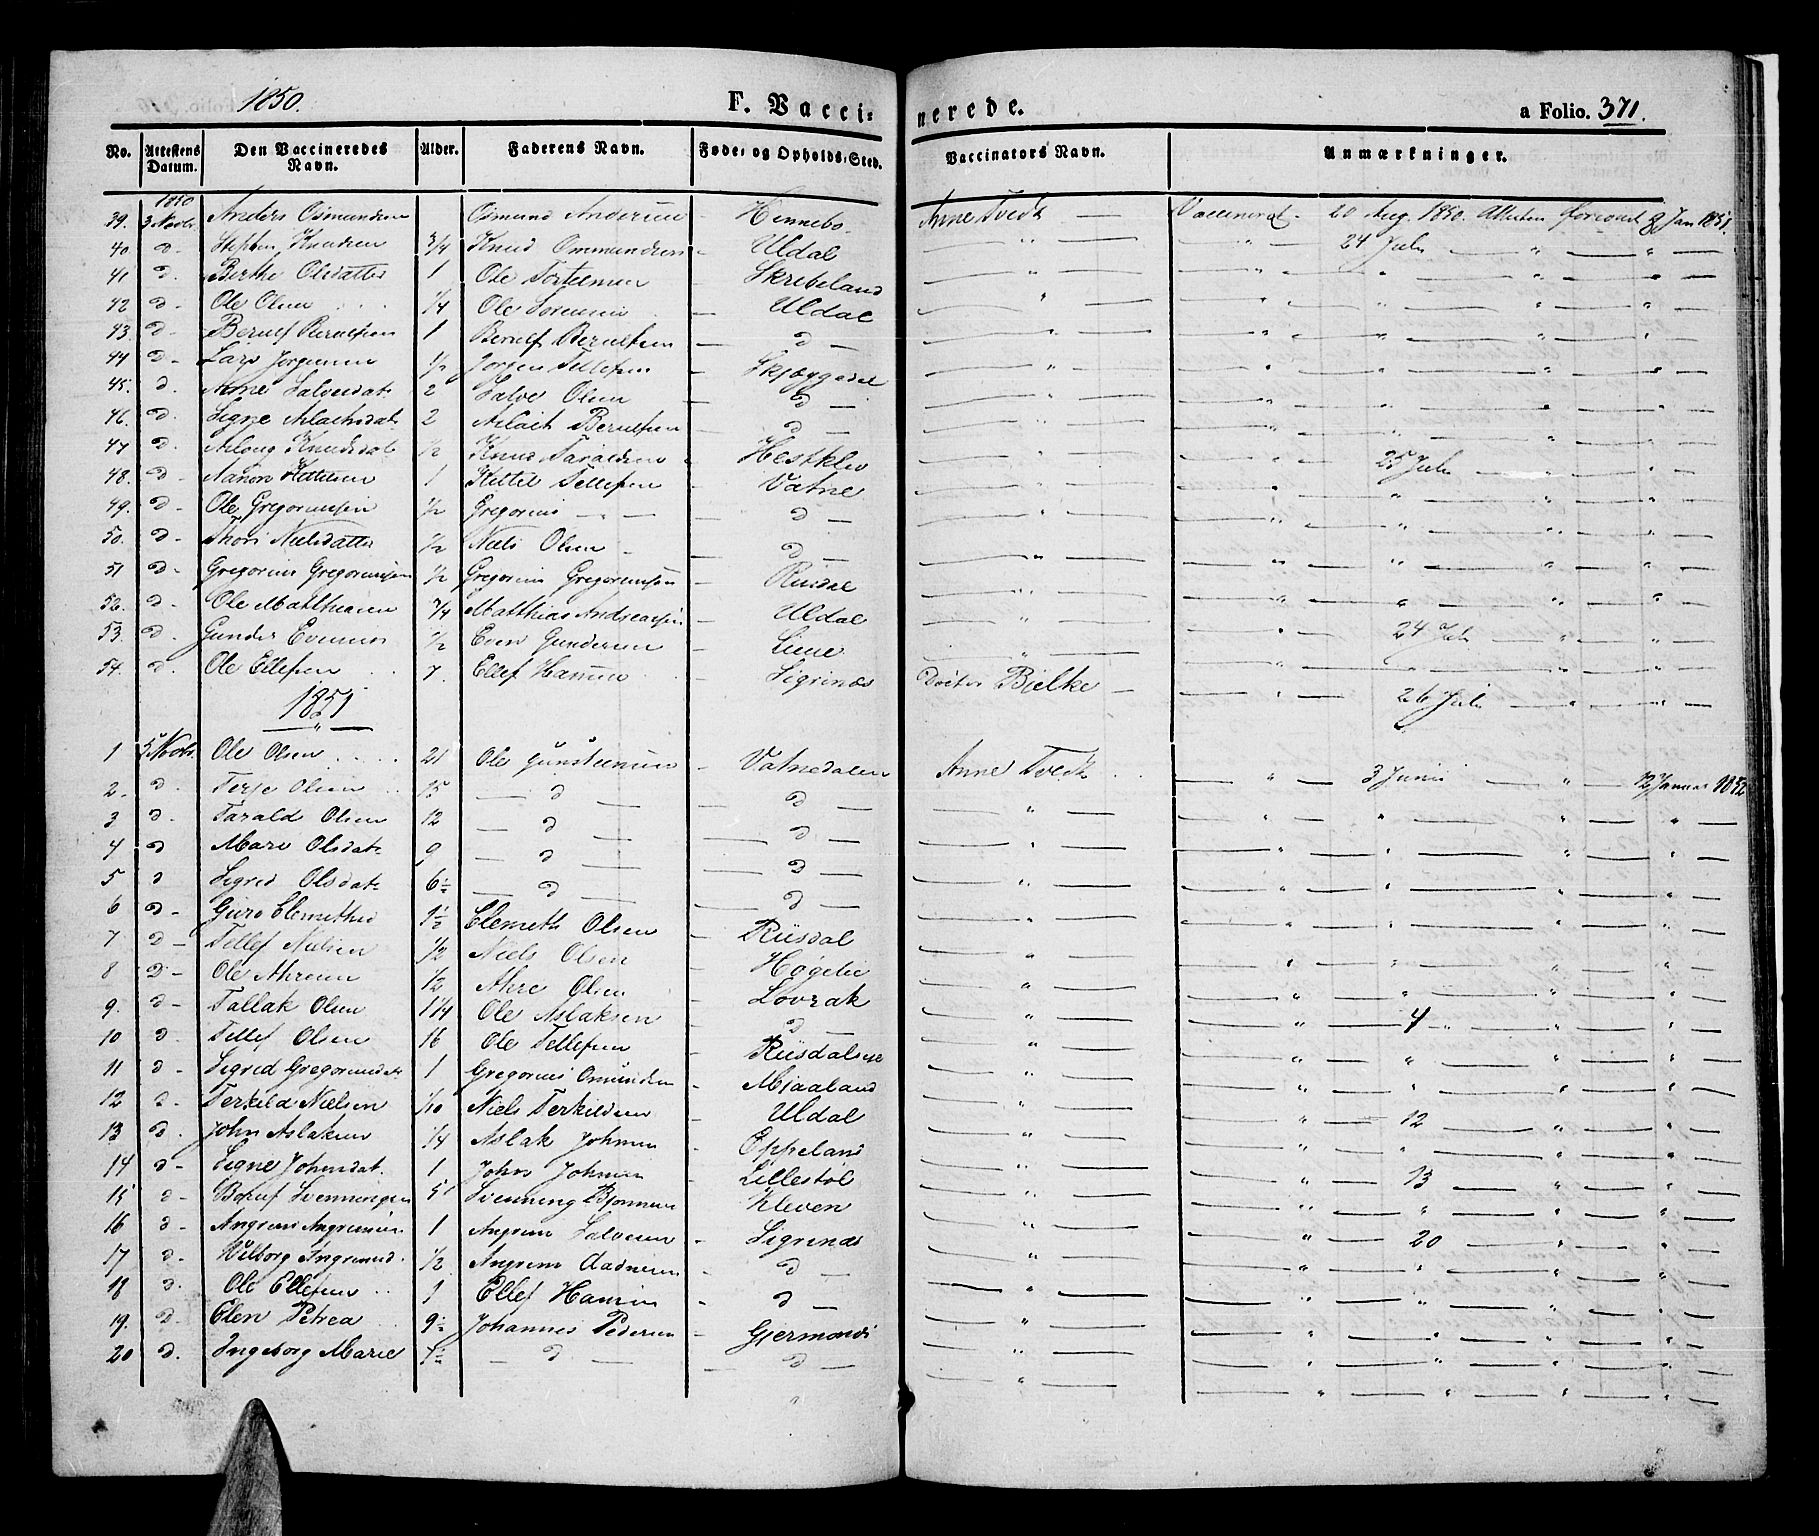 1850. F. Vaccinerede. a Folio. 371.
No. Attestens Datum. Den Vaccineredes Navn. Alder. Faderens Navn. Føde- og Opholds-Sted. Vaccinators Navn. Anmærkninger.
1850
39. 3 Novbr. Anders Osmundsen Osmund Andersen - Hennebo Anne Tvedt — Vaccineret - 20 Aug. 1850. Attesten forevist 8 Jan 1851.
40 d - Stephen Knudsen 3/4 Knud Ommundsen - Uldal — " — — " — 24 Juli — " — " —
41 d - Berthe Olsdatter 1 Ole Torkelsen - Skribeland — " —
42 d - Ole Olsen 1/4 Ole Sørensen — Uldal — " —
43 d - Berulf Berulfsen 1 Berulf Berulfsen — d — — " —
44 d - Lars Jørgensen 1/2 Jørgen Tellefsen — Skjæggedal — " —
45. d. Anne Salvesdat. 2 Salve Olsen — d — — " —
46. d - Signe Aslachsdat 2 Aslach Berulfsen — d — — " —
47 d - Aslaug Knudsdat 1/2 Knud Taraldsen - Hestklev — " — — " — 25 Juli — " — " —
48. d - Kittelsen 1 Kittel Tellefsen - Vatne — " —
49. d - Ole Gregoriussen 1/2 Gregorius — " — — d — — " —
50. d - Thori Nielsdatter 1/2 Niels Olsen - — d — — " —
51 d - Gregorius Gregoriussen 1/2 Gregorius Gregoriussen - Riisdal — " —
52. d - Ole Matthiasen 3/4 Matthias Andreassen - Uldal — " —
53. d - Gunder Evensen 1/2 Even Gundersen — Liene — " — — " — 24 Juli — " — " —
54. d. Ole Ellefsen 7. Ellef Hansen - Sigrinæs Doctor Bielke — — " — 26 Juli — " — " —
1851
1 5 Novbr. Ole Olsen 21 Ole Gunsteensen — Vatnedalen Anne Tvedt — " — 3 Junii — " — 12 Januar 1852
2. d. Terje Olsen 15 — d — — d — — " —
3 d. Tarald Olsen 12 — d — — d — — " —
4 d - Mari Olsdat 9 — d — — d — — " —
5 d Sigrid Olsdat 6 1/2 — d — — d — — " —
6 d - Guro Clemetsd 1 1/2 Clemeth Olsen - Riisdal — " —
7 d — Tellef Nielsen 1/2 Niels Olsen - Høgelie — " —
8 d - Ole Ahresen 1/2 Ahre Olsen - Lovrak — " —
9. d - Tallak Olsen 1 1/4 Ole Aslaksen — d — — " — — " — 4 — " — " —
10 d - Tellef Olsen 16 Ole Tellefsen - — " —
11 d - Sigrid Gregoriusdat 1 Gregorius Omunden - Mjaaland — " —
12 d - Terkild Nielsen 1/10 Niels Terkildsen - Uldal — " — — " — 12 — " — " —
13 d. John Aslaksen 1/4 Aslak Johnsen - Oppeland — " —
14 d - Signe Johnsdat. 1 John Johnsen - Lillestøl — " — — " — 13 — " — " —
15 d - Svenningsen 5 Svenning Bjørnsen - Kleven — " —
16 d - Angrim Angrimsen 1 Angrim Salvesen - Sigrinæs — " — — " — 20 — " — " —
17 d. Wilborg Angrimsd. 1/2 Angrim Aadnesen - — d — — " —
18 d. Ole Ellefsen 1 Ellef Hansen - — d — — " —
19. d. Elen Petrea 9 1/2 Johannes Pedersen - Gjermonds — " —
20 d. Ingeborg Marie 7 1/2 — d — — d — — " —